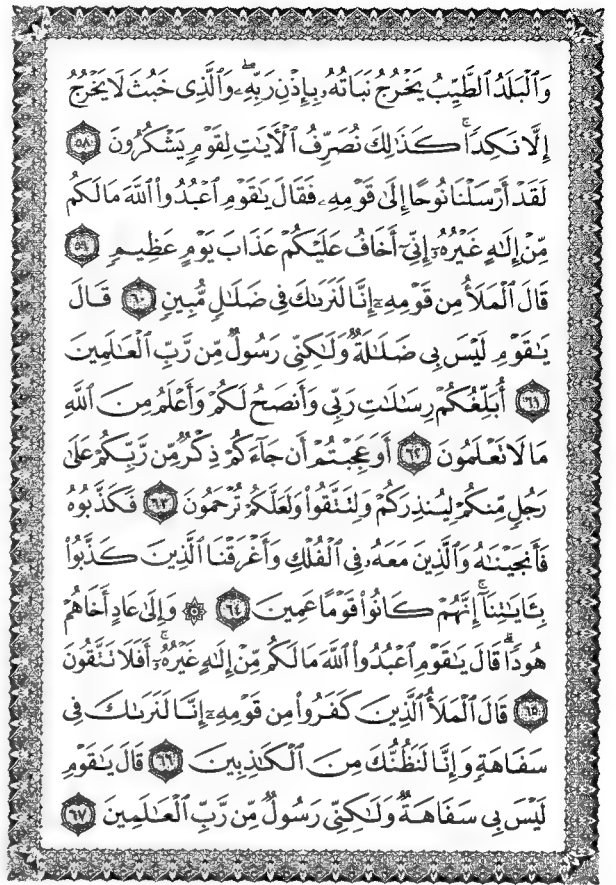 وَٱلْبَلَدُ ٱلطَّيِّبُ يَخْرُجُ نَبَاتُهُۥ بِإِذْنِ رَبِّهِۦۖ وَٱلَّذِى خَبُثَ لَا يَخْرُجُ
إِلَّا نَكِدًاۚ كَذَٰلِكَ نُصَرِّفُ ٱلْأَيَٰتِ لِقَوْمٍ يَشْكُرُونَ ٥٨
لَقَدْ أَرْسَلْنَا نُوحًا إِلَىٰ قَوْمِهِۦ فَقَالَ يَٰقَوْمِ ٱعْبُدُوا۟ ٱللَّهَ مَا لَكُم
مِّنْ إِلَٰهٍ غَيْرُهُۥٓ إِنِّىٓ أَخَافُ عَلَيْكُمْ عَذَابَ يَوْمٍ عَظِيمٍ ٥٩
قَالَ ٱلْمَلَأُ مِن قَوْمِهِۦٓ إِنَّا لَنَرَىٰكَ فِى ضَلَٰلٍ مُّبِينٍ ٦٠ قَالَ
يَٰقَوْمِ لَيْسَ بِى ضَلَٰلَةٌ وَلَٰكِنِّى رَسُولٌ مِّن رَّبِّ ٱلْعَٰلَمِينَ
٦١ أُبَلِّغُكُمْ رِسَٰلَٰتِ رَبِّى وَأَنصَحُ لَكُمْ وَأَعْلَمُ مِنَ ٱللَّهِ
مَا لَا تَعْلَمُونَ ٦٢ أَوَعَجِبْتُمْ أَن جَآءَكُمْ ذِكْرٌ مِّن رَّبِّكُمْ عَلَىٰ
رَجُلٍ مِّنكُمْ لِيُنذِرَكُمْ وَلِتَتَّقُوا۟ وَلَعَلَّكُمْ تُرْحَمُونَ ٦٣ فَكَذَّبُوهُ
فَأَنجَيْنَٰهُ وَٱلَّذِينَ مَعَهُۥ فِى ٱلْفُلْكِ وَأَغْرَقْنَا ٱلَّذِينَ كَذَّبُوا۟
بِـَٔايَٰتِنَآۚ إِنَّهُمْ كَانُوا۟ قَوْمًا عَمِينَ ٦٤ ۞ وَإِلَىٰ عَادٍ أَخَاهُمْ
هُودًاۗ قَالَ يَٰقَوْمِ ٱعْبُدُوا۟ ٱللَّهَ مَا لَكُم مِّنْ إِلَٰهٍ غَيْرُهُۥٓۚ أَفَلَا تَتَّقُونَ
٦٥ قَالَ ٱلْمَلَأُ ٱلَّذِينَ كَفَرُوا۟ مِن قَوْمِهِۦٓ إِنَّا لَنَرَىٰكَ فِى
سَفَاهَةٍ وَإِنَّا لَنَظُنُّكَ مِنَ ٱلْكَٰذِبِينَ ٦٦ قَالَ يَٰقَوْمِ
لَيْسَ بِى سَفَاهَةٌ وَلَٰكِنِّى رَسُولٌ مِّن رَّبِّ ٱلْعَٰلَمِينَ ٦٧